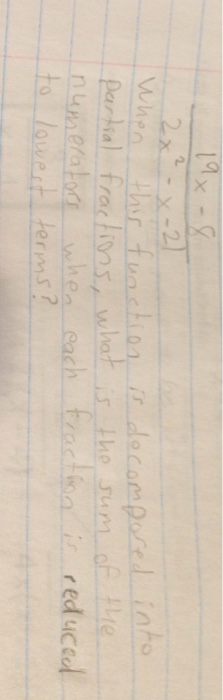 19x - 8
2x² - x - 21
When this function is decomposed into
partial fractions, what is the sum of the
numerators when each fraction is reduced
to lowest terms?